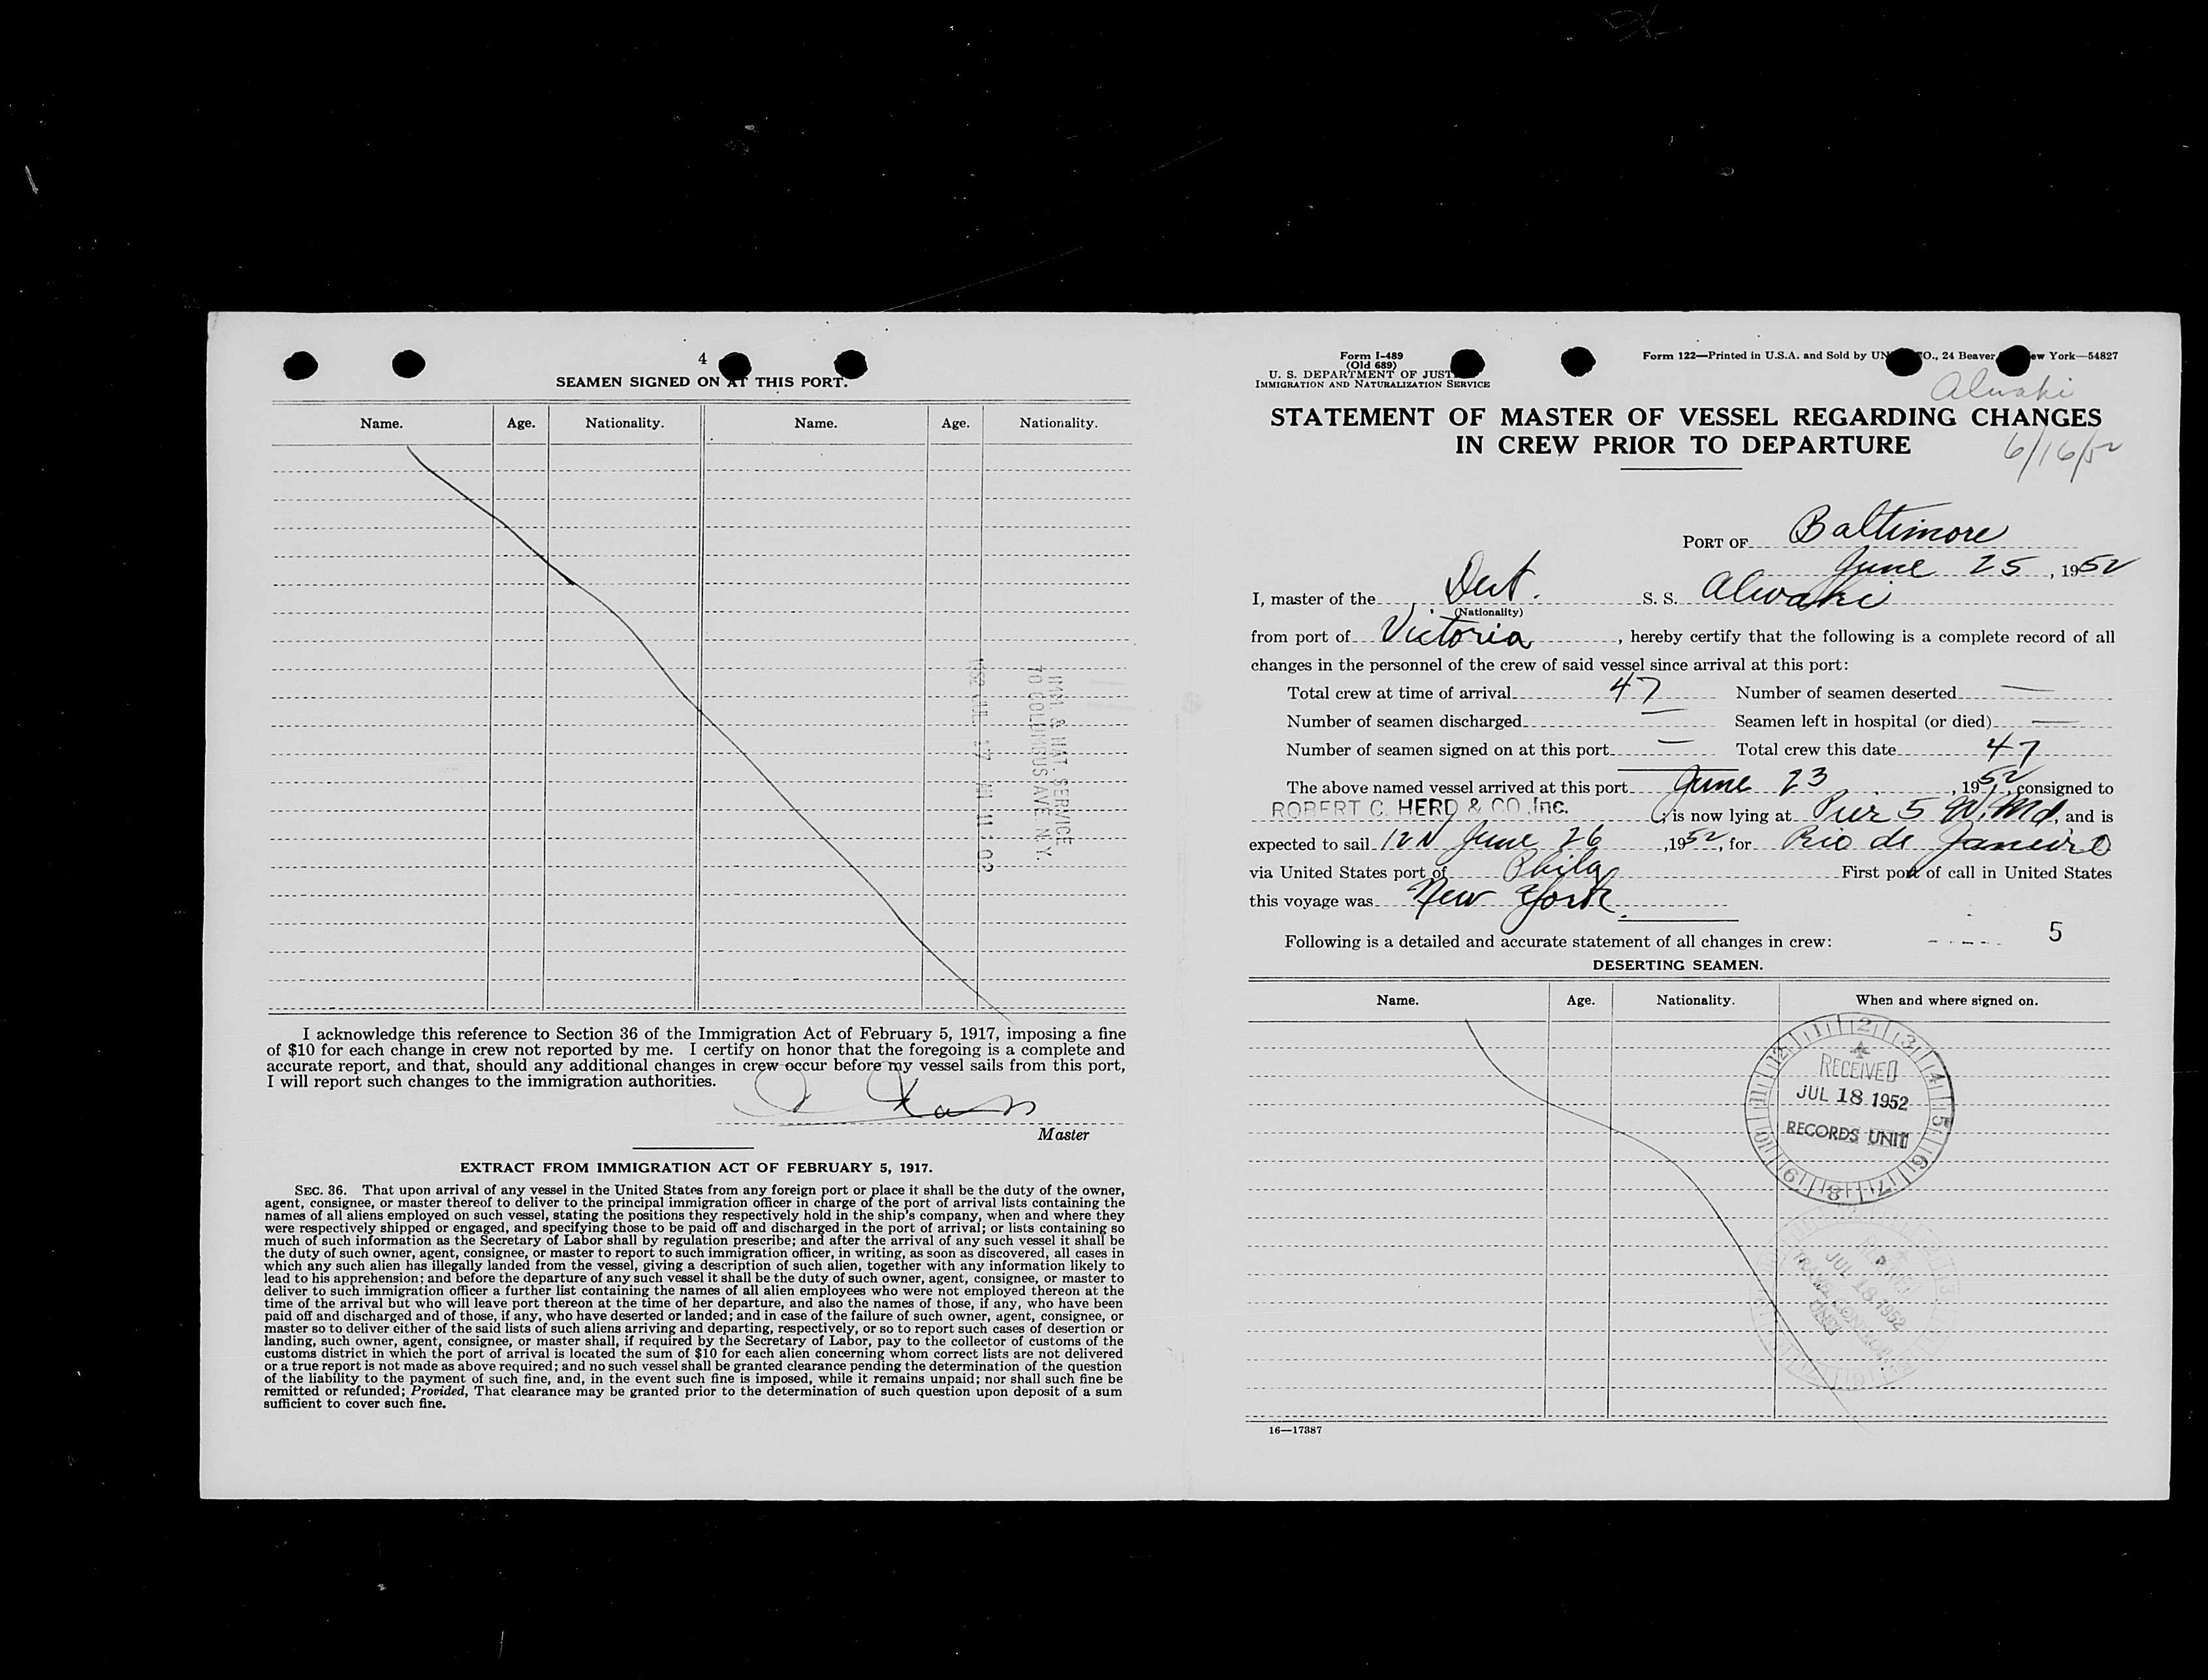 4
SEAMEN SIGNED ON AT THIS PORT.
Name. Age. Nationality. Name. Age. Nationality.
IMM. & NAT. SERVICE
70 COLUMBUS AVE. N.Y.
1952 JUL 17 AM 11 02
I acknowledge this reference to Section 36 of the Immigration Act of February 5, 1917, imposing a fine
of $10 for each change in crew not reported by me. I certify on honor that the foregoing is a complete and
accurate report, and that, should any additional changes in crew occur before my vessel sails from this port,
I will report such changes to the immigration authorities.
Master
EXTRACT FROM IMMIGRATION ACT OF FEBRUARY 5, 1917.
SEC. 36. That upon arrival of any vessel in the United States from any foreign port or place it shall be the duty of the owner,
agent, consignee, or master thereof to deliver to the principal immigration officer in charge of the port of arrival lists containing the
names of all aliens employed on such vessel, stating the positions they respectively hold in the ship's company, when and where they
were respectively shipped or engaged, and specifying those to be paid off and discharged in the port of arrival; or lists containing so
much of such information as the Secretary of Labor shall by regulation prescribe; and after the arrival of any such vessel it shall be
the duty of such owner, agent, consignee, or master to report to such immigration officer, in writing, as soon as discovered, all cases in
which any such alien has illegally landed from the vessel, giving a description of such alien, together with any information likely to
lead to his apprehension; and before the departure of any such vessel it shall be the duty of such owner, agent, consignee, or master to
deliver to such immigration officer a further list containing the names of all alien employees who were not employed thereon at the
time of the arrival but who will leave port thereon at the time of her departure, and also the names of those, if any, who have been
paid off and discharged and of those, if any, who have deserted or landed; and in case of the failure of such owner, agent, consignee, or
master so to deliver either of the said lists of such aliens arriving and departing, respectively, or so to report such cases of desertion or
landing, such owner, agent, consignee, or master shall, if required by the Secretary of Labor, pay to the collector of customs of the
customs district in which the port of arrival is located the sum of $10 for each alien concerning whom correct lists are not delivered
or a true report is not made as above required; and no such vessel shall be granted clearance pending the determination of the question
of the liability to the payment of such fine, and, in the event such fine is imposed, while it remains unpaid; nor shall such fine be
remitted or refunded; Provided, That clearance may be granted prior to the determination of such question upon deposit of a sum
sufficient to cover such fine.
Form I-489
(Old 689)
U. S. DEPARTMENT OF JUST
IMMIGRATION AND NATURALIZATION SERVICE
Form 122—Printed in U.S.A. and Sold by UN CO., 24 Beaver ew York—54827
Alwaki
STATEMENT OF MASTER OF VESSEL REGARDING CHANGES
IN CREW PRIOR TO DEPARTURE
6/16/52
PORT OF Baltimore
June 25, 1952
I, master of the Dut. S. S. Alwaki
(Nationality)
from port of Victoria, hereby certify that the following is a complete record of all
changes in the personnel of the crew of said vessel since arrival at this port:
Total crew at time of arrival 47 Number of seamen deserted —
Number of seamen discharged — Seamen left in hospital (or died) —
Number of seamen signed on at this port — Total crew this date 47
The above named vessel arrived at this port June 23, 1952, consigned to
ROBERT C. HERD & CO., Inc. ; is now lying at Pier 5 W. Md, and is
expected to sail 12 N June 26, 1952, for Rio de Janeiro
via United States port of Phila First port of call in United States
this voyage was New York.
Following is a detailed and accurate statement of all changes in crew: 5
DESERTING SEAMEN.
Name. Age. Nationality. When and where signed on.
12 1 2 3 4 5 6 7 8 9 10 11
RECEIVED
JUL 18 1952
RECORDS UNIT
JUL 18 1952
TRAVEL CONTROL
UNIT
16—17387